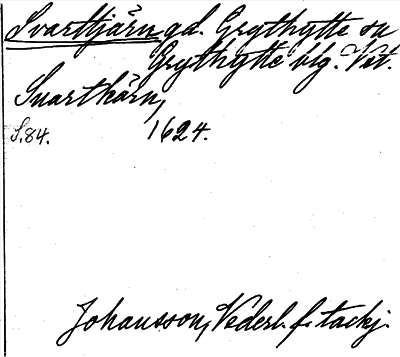 Svarttjärn gd. Grythytte sn
Grythytte blg. Vstm.
Svartkärn,
S. 84. 1624.
Johansson, Vederl. f. tackj.